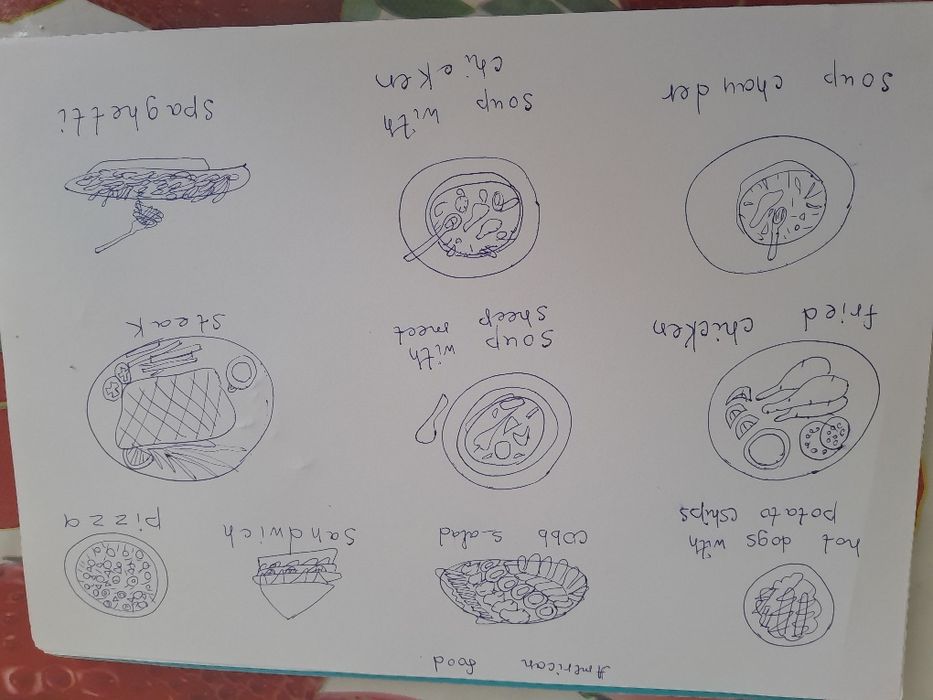 American food
hot dogs with
potato cships
cobb salad
sandwich
pizza
fried chicken
soup with
sheep meet
steak
soup chauder
soup with
chicken
spaghetti